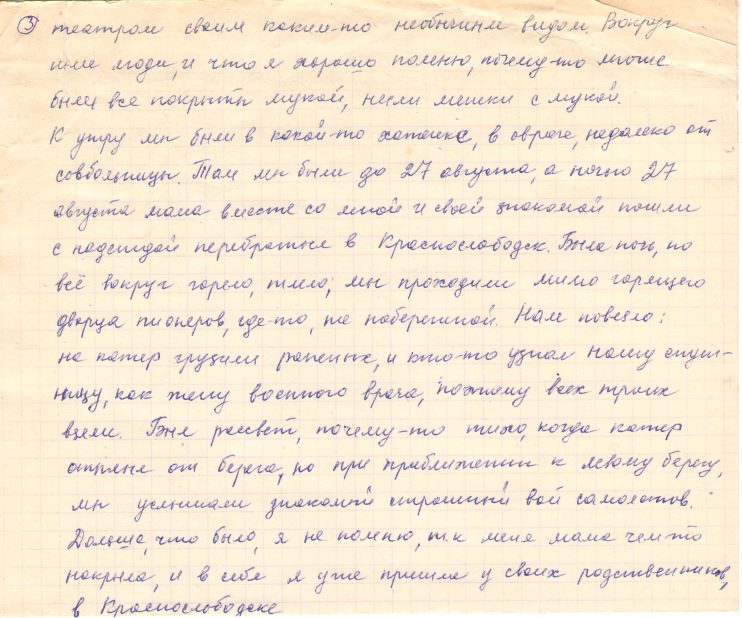 ③ театром своим каким-то необычным видом. Вокруг
шли люди, и что я хорошо помню, почему-то многие
были все покрыты мукой, несли мешки с мукой.
К утру мы были в какой-то хатенке, в овраге, недалеко от
совбольницы. Там мы были до 27 августа, а ночью 27
августа мама вместе со мной и своей знакомой пошли
с надеждой перебраться в Краснослободск. Была ночь, но
всё вокруг горело, тлело, мы проходили мимо горящего
дворца пионеров, где-то, на набережной. Нам повезло:
на катер грузили раненых, и кто-то узнал нашу спут-
ницу, как жену военного врача, поэтому всех троих
взяли. Был рассвет, почему-то тихо, когда катер
отплыл от берега, но при приближении к левому берегу,
мы услышали знакомый страшный вой самолетов.
Дальше, что было, я не помню, т.к меня мама чем-то
накрыла, и в себя я уже пришла у своих родственников,
в Краснослободске